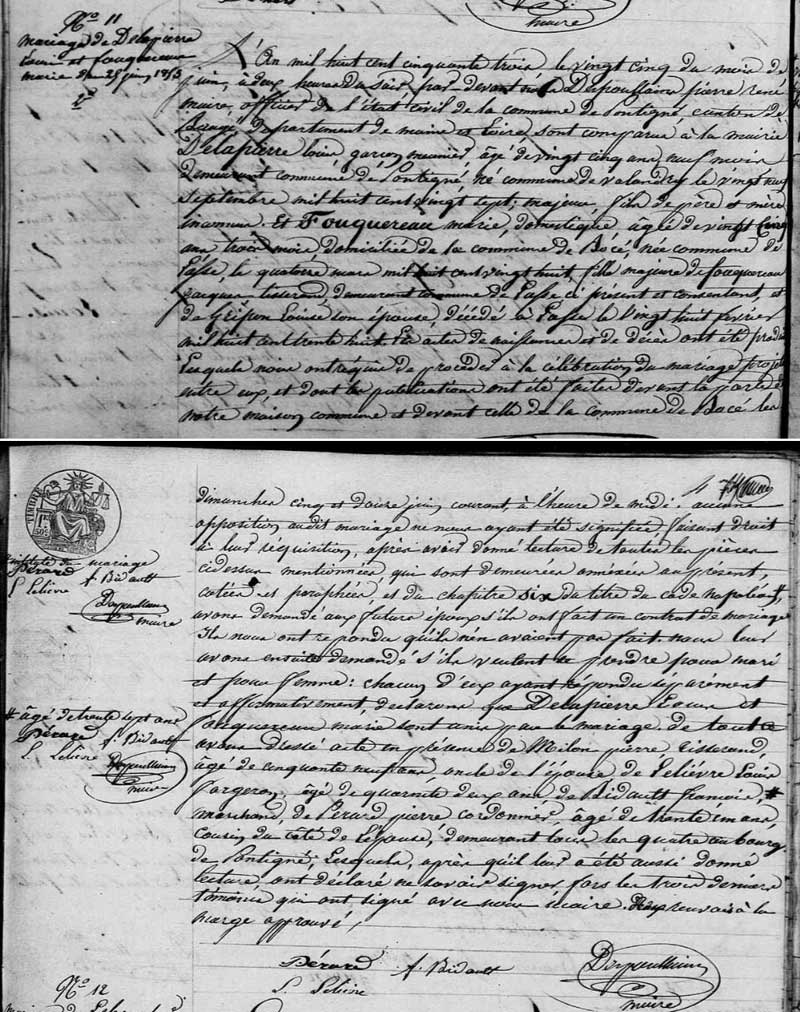 maire
No 11
mariage de Delapierre
Louis et Fouquereau
marie du 25 juin 1853
L'An mil huit cent cinquante trois le vingt cinq du mois de
juin, à deux heures du soir, par-devant nous Despoullains pierre rené
maire, officier de l'état civil de la commune de Pontigné, canton de
Baugé, département de maine et Loire sont comparus à la mairie
Delapierre louis, garçon meunier, âgé de vingt cinq ans neuf mois
demeurant commune de Pontigné, né commune de valandry le vingt neuf
septembre mil huit cent vingt sept, majeur, fils de père et mère
inconnus. Et Fouquereau marie, domestique, âgée de vingt cinq
ans trois mois domiciliée de la commune de Bocé, née commune de
Lasse, le quatorze mars mil huit cent vingt huit, fille majeure de fouquereau
jacques tisserand, demeurant commune de Lasse ci présent et consentant, et
de Gripon Louise son épouse, décédée à Lasse le vingt huit février
mil huit cent trente huit. Les actes de naissances et de décès ont été produits
Lesquels nous ont requis de procéder à la célébration du mariage projeté
entre eux, et dont les publications ont été faites devant la porte de
notre maison commune et devant celle de la commune de Bocé les
TIMBRE
dimanches cinq et douze juin courant, à l'heure de midi. aucune
opposition audit mariage ne nous ayant été signifiée, faisant droit
à leur réquisition, après avoir donné lecture de toutes les pièces
cidessus mentionnées, qui sont demeurées annexées au présent,
cotées et paraphées, et du chapitre six du titre du code napoléon,
avons demandé aux futurs époux s'ils ont fait un contrat de mariage
Ils nous ont répondu qu'ils n'en avaient pas fait. nous leur
avons ensuite demandé s'ils veulent se prendre pour mari
et pour femme: chacun d'eux ayant répondu séparément
et affirmativement, déclarons que Delapierre Louis et
fouquereau marie sont unis par le mariage. de tout ce
avons dressé acte en présence de Milon pierre tisserand,
âgé de cinquante neuf ans, oncle de l'épouse, de Lelièvre Louis
forgeron, âgé de quarante deux ans de Bidault françois, #
marchand, de Pérard pierre cordonnier, âgé de trente un ans,
cousin du côté de l'épouse, demeurant tous les quatre au bourg
de Pontigné; Lesquels, après qu'il leur a été aussi donné
lecture ont déclaré ne savoir signer, fors les trois derniers
témoins qui ont signé avec nous maire. Deux renvois à la
marge approuvé,
mariage
Pérard
A Bidault
L Lelièvre
Despoullains
maire
# âgé de trente sept ans
Pérard
A. Bidault
L. Lelièvre
Despoullains
maire
Pérard
A. Bidault
L. Lelièvre
Despoullains
maire
No 12